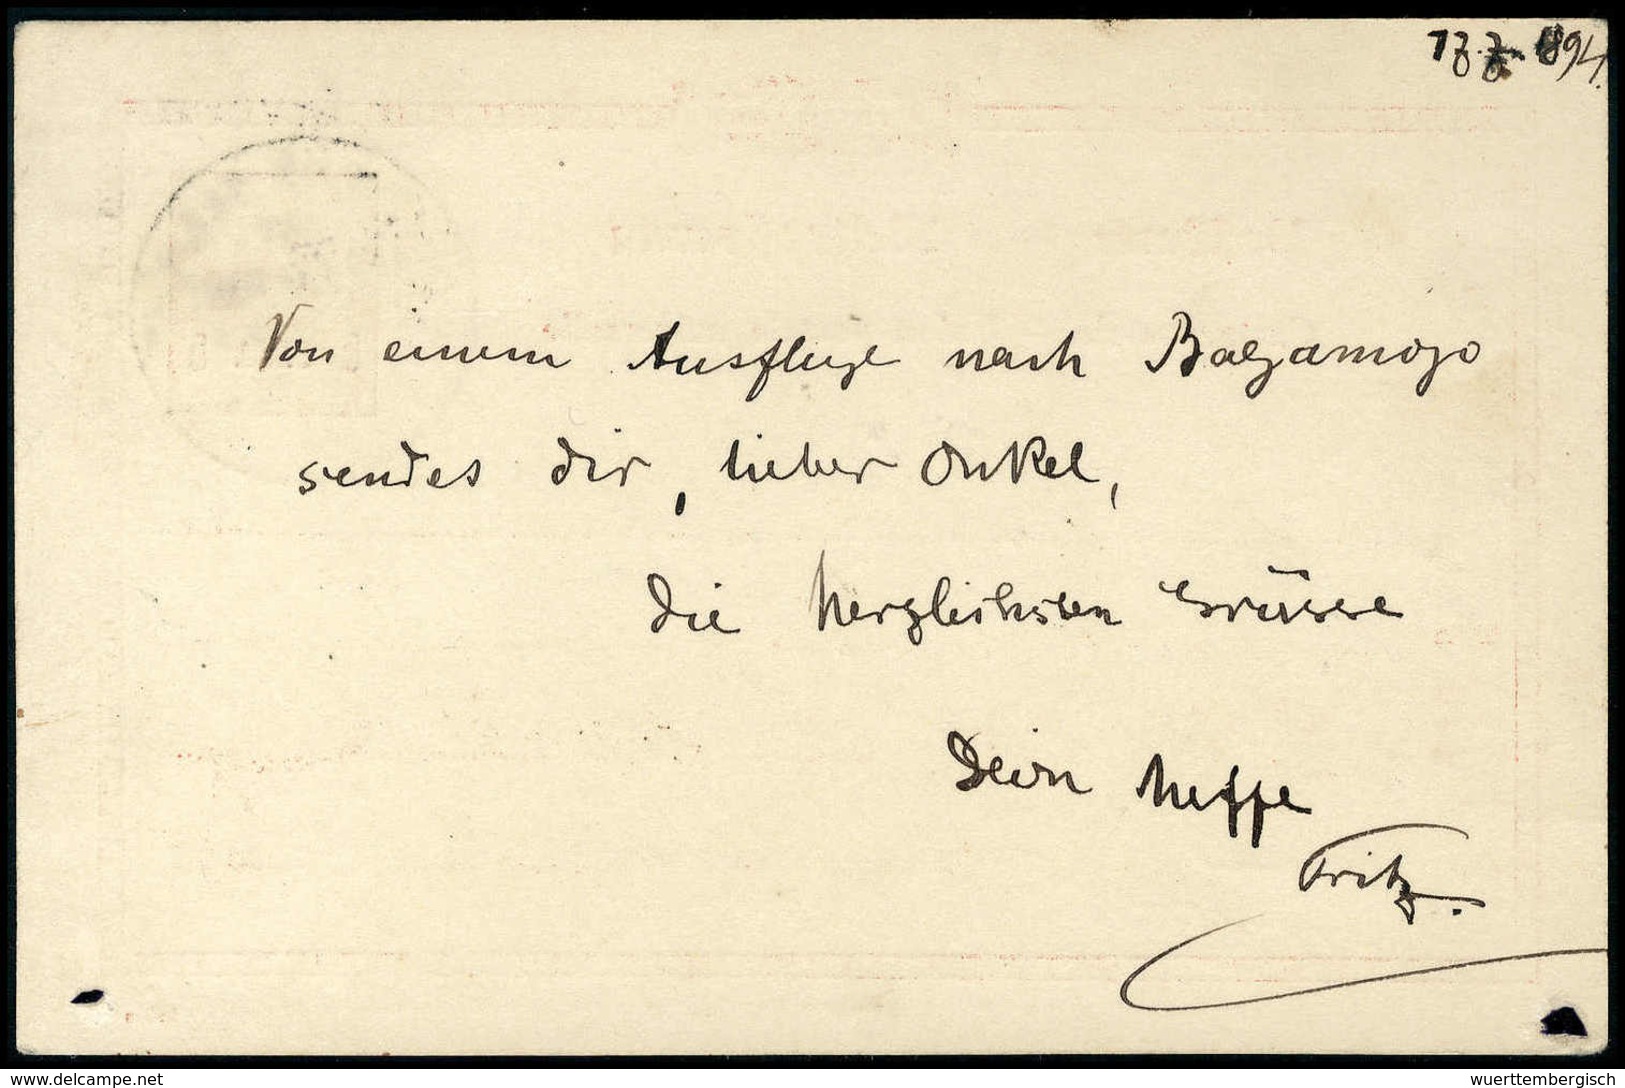 Von einem Ausfluge nach Bagamojo
sendet dir, lieber Onkel,
die herzlichsten Grüsse
Dein Neffe
Fritz.
www.delcampe.net
wuerttembergisch